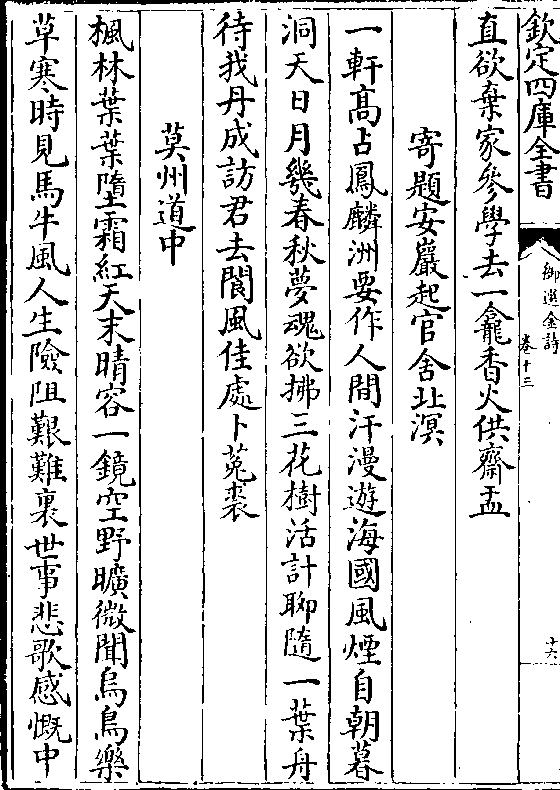 欽定四庫全書
御選金詩
卷十三
十六
直欲棄家參學去一龕香火供齋盂
寄題安巖起官舍北溟
一軒髙占鳳麟洲要作人間汗漫遊海國風煙自朝暮
洞天日月幾春秋夢魂欲拂三花樹活計聊隨一葉舟
待我丹成訪君去閬風佳處卜菟裘
莫州道中
楓林葉葉墮霜紅天末晴容一鏡空野曠微聞烏鳥樂
草寒時見馬牛風人生險阻艱難裏世事悲歌感慨中